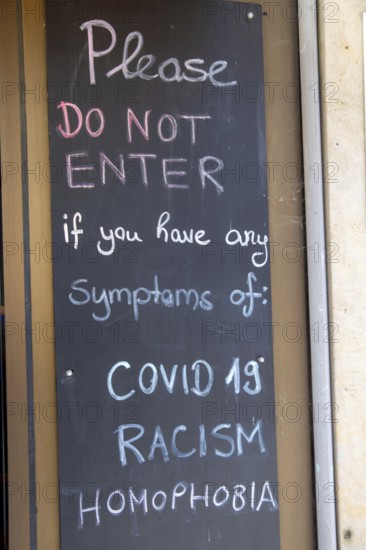 Please
DO NOT
ENTER
if you have any
symptoms of:
COVID 19
RACISM
HOMOPHOBIA